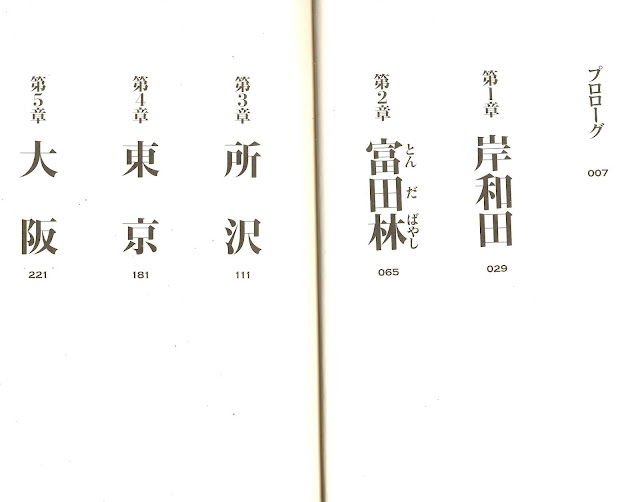 プロローグ
007
第1章
岸和田
029
第2章
富田林
とんだばやし
065
第3章
所沢
111
第4章
東京
181
第5章
大阪
221